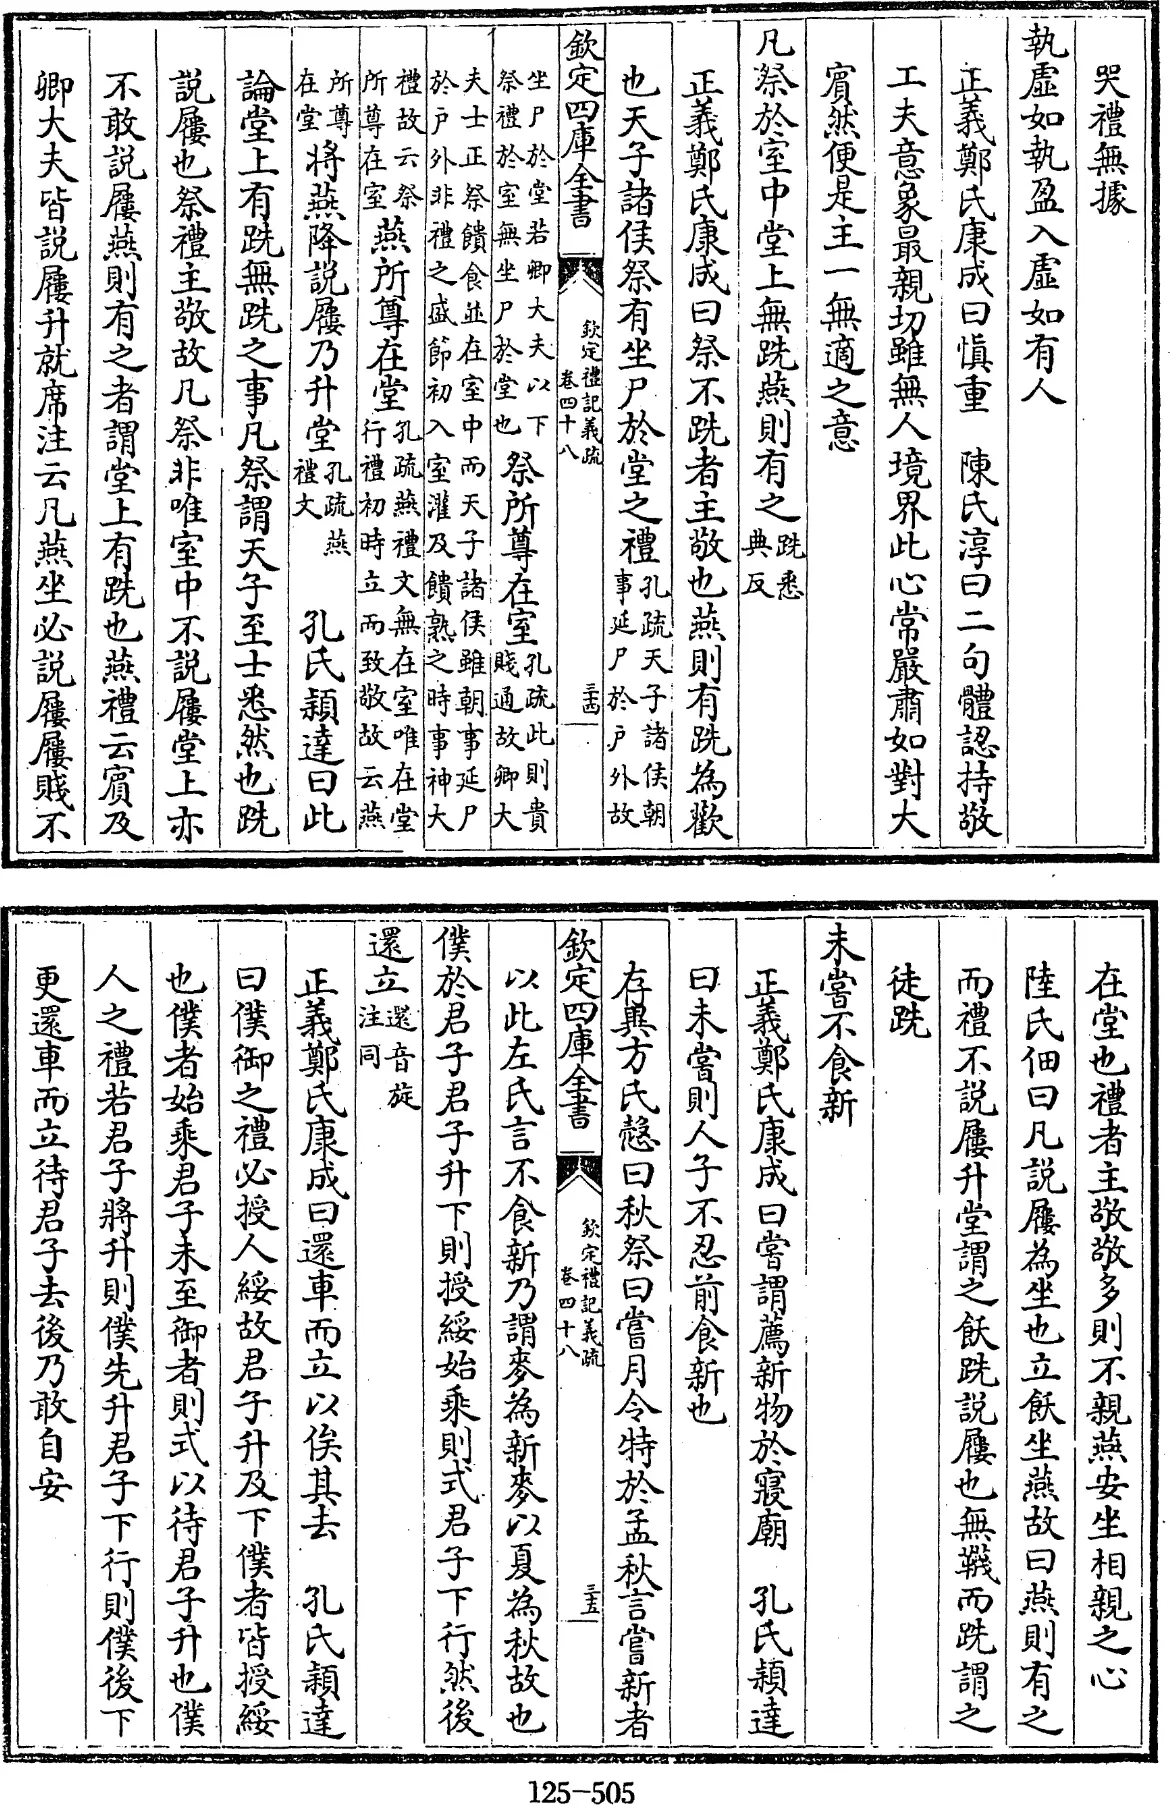 哭禮無據
執虛如執盈入虛如有人
正義鄭氏康成曰慎重　陳氏淳曰二句體認持敬
工夫意象最親切雖無人境界此心常嚴肅如對大
賓然便是主一無適之意
凡祭於室中堂上無跣燕則有之跣悉典反
正義鄭氏康成曰祭不跣者主敬也燕則有跣為歡
也天子諸侯祭有坐尸於堂之禮孔疏天子諸侯朝事延尸於戶外故
欽定四庫全書　欽定禮記義疏卷四十八　三十四
坐尸於堂若卿大夫以下祭禮於室無坐尸於堂也祭所尊在室孔疏此則貴賤通故卿大
夫士正祭饋食並在室中而天子諸侯雖朝事延尸於戶外非禮之盛節初入室灌及饋熟之時事神大
禮故云祭所尊在室燕所尊在堂孔疏燕禮文無在室唯在堂行禮初時立而致敬故云燕
所尊在堂將燕降說屨乃升堂孔疏燕禮文　孔氏穎達曰此
論堂上有跣無跣之事凡祭謂天子至士悉然也跣
說屨也祭禮主敬故凡祭非唯室中不說屨堂上亦
不敢說屨燕則有之者謂堂上有跣也燕禮云賓及
卿大夫皆說屨升就席注云凡燕坐必說屨屨賤不
在堂也禮者主敬敬多則不親燕安坐相親之心
陸氏佃曰凡說屨為坐也立飫坐燕故曰燕則有之
而禮不說屨升堂謂之飫跣說屨也無韤而跣謂之
徒跣
未嘗不食新
正義鄭氏康成曰嘗謂薦新物於寢廟　孔氏穎達
曰未嘗則人子不忍前食新也
存異方氏慤曰秋祭曰嘗月令特於孟秋言嘗新者
欽定四庫全書　欽定禮記義疏卷四十八　三十五
以此左氏言不食新乃謂麥為新麥以夏為秋故也
僕於君子君子升下則授綏始乘則式君子下行然後
還立還音旋注同
正義鄭氏康成曰還車而立以俟其去　孔氏穎達
曰僕御之禮必授人綏故君子升及下僕者皆授綏
也僕者始乘君子未至御者則式以待君子升也僕
人之禮若君子將升則僕先升君子下行則僕後下
更還車而立待君子去後乃敢自安
125-505